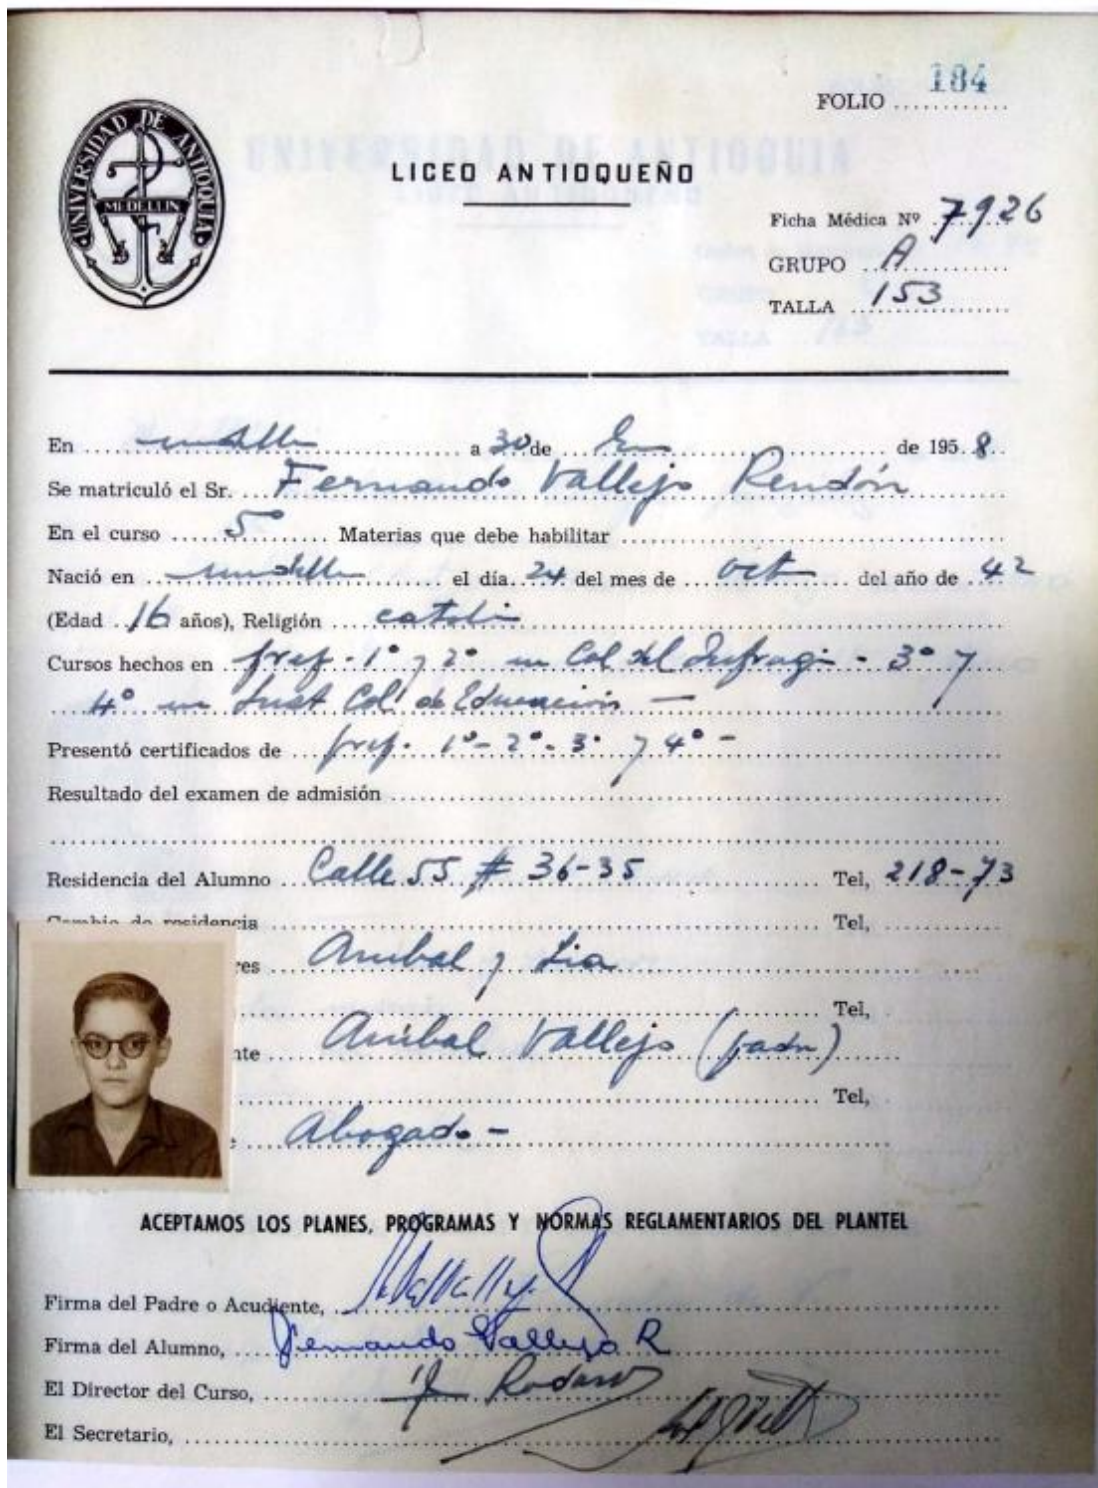 184
FOLIO ............
UNIVERSIDAD DE ANTIOQUIA
MEDELLIN
LICEO ANTIOQUEÑO
Ficha Médica Nº 7926
GRUPO A
TALLA 153
En Medellín a 30 de En de 1958
Se matriculó el Sr. Fernando Vallejo Rendón
En el curso 5º Materias que debe habilitar
Nació en Medellín el día 24 del mes de oct del año de 42
(Edad 16 años), Religión catoli
Cursos hechos en pref - 1º y 2º en Col del Sufragi - 3º y
4º en Inst Col de Educación —
Presentó certificados de pref. 1º - 2º - 3º y 4º -
Resultado del examen de admisión
Residencia del Alumno Calle 55 # 36-35 Tel, 218-73
Cambio de residencia Tel,
res Anibal y Lia
Tel,
nte Anibal Vallejo (padre)
Tel,
Abogado -
ACEPTAMOS LOS PLANES, PROGRAMAS Y NORMAS REGLAMENTARIOS DEL PLANTEL
Firma del Padre o Acudiente,
Firma del Alumno, Fernando Vallejo R
El Director del Curso,
El Secretario,